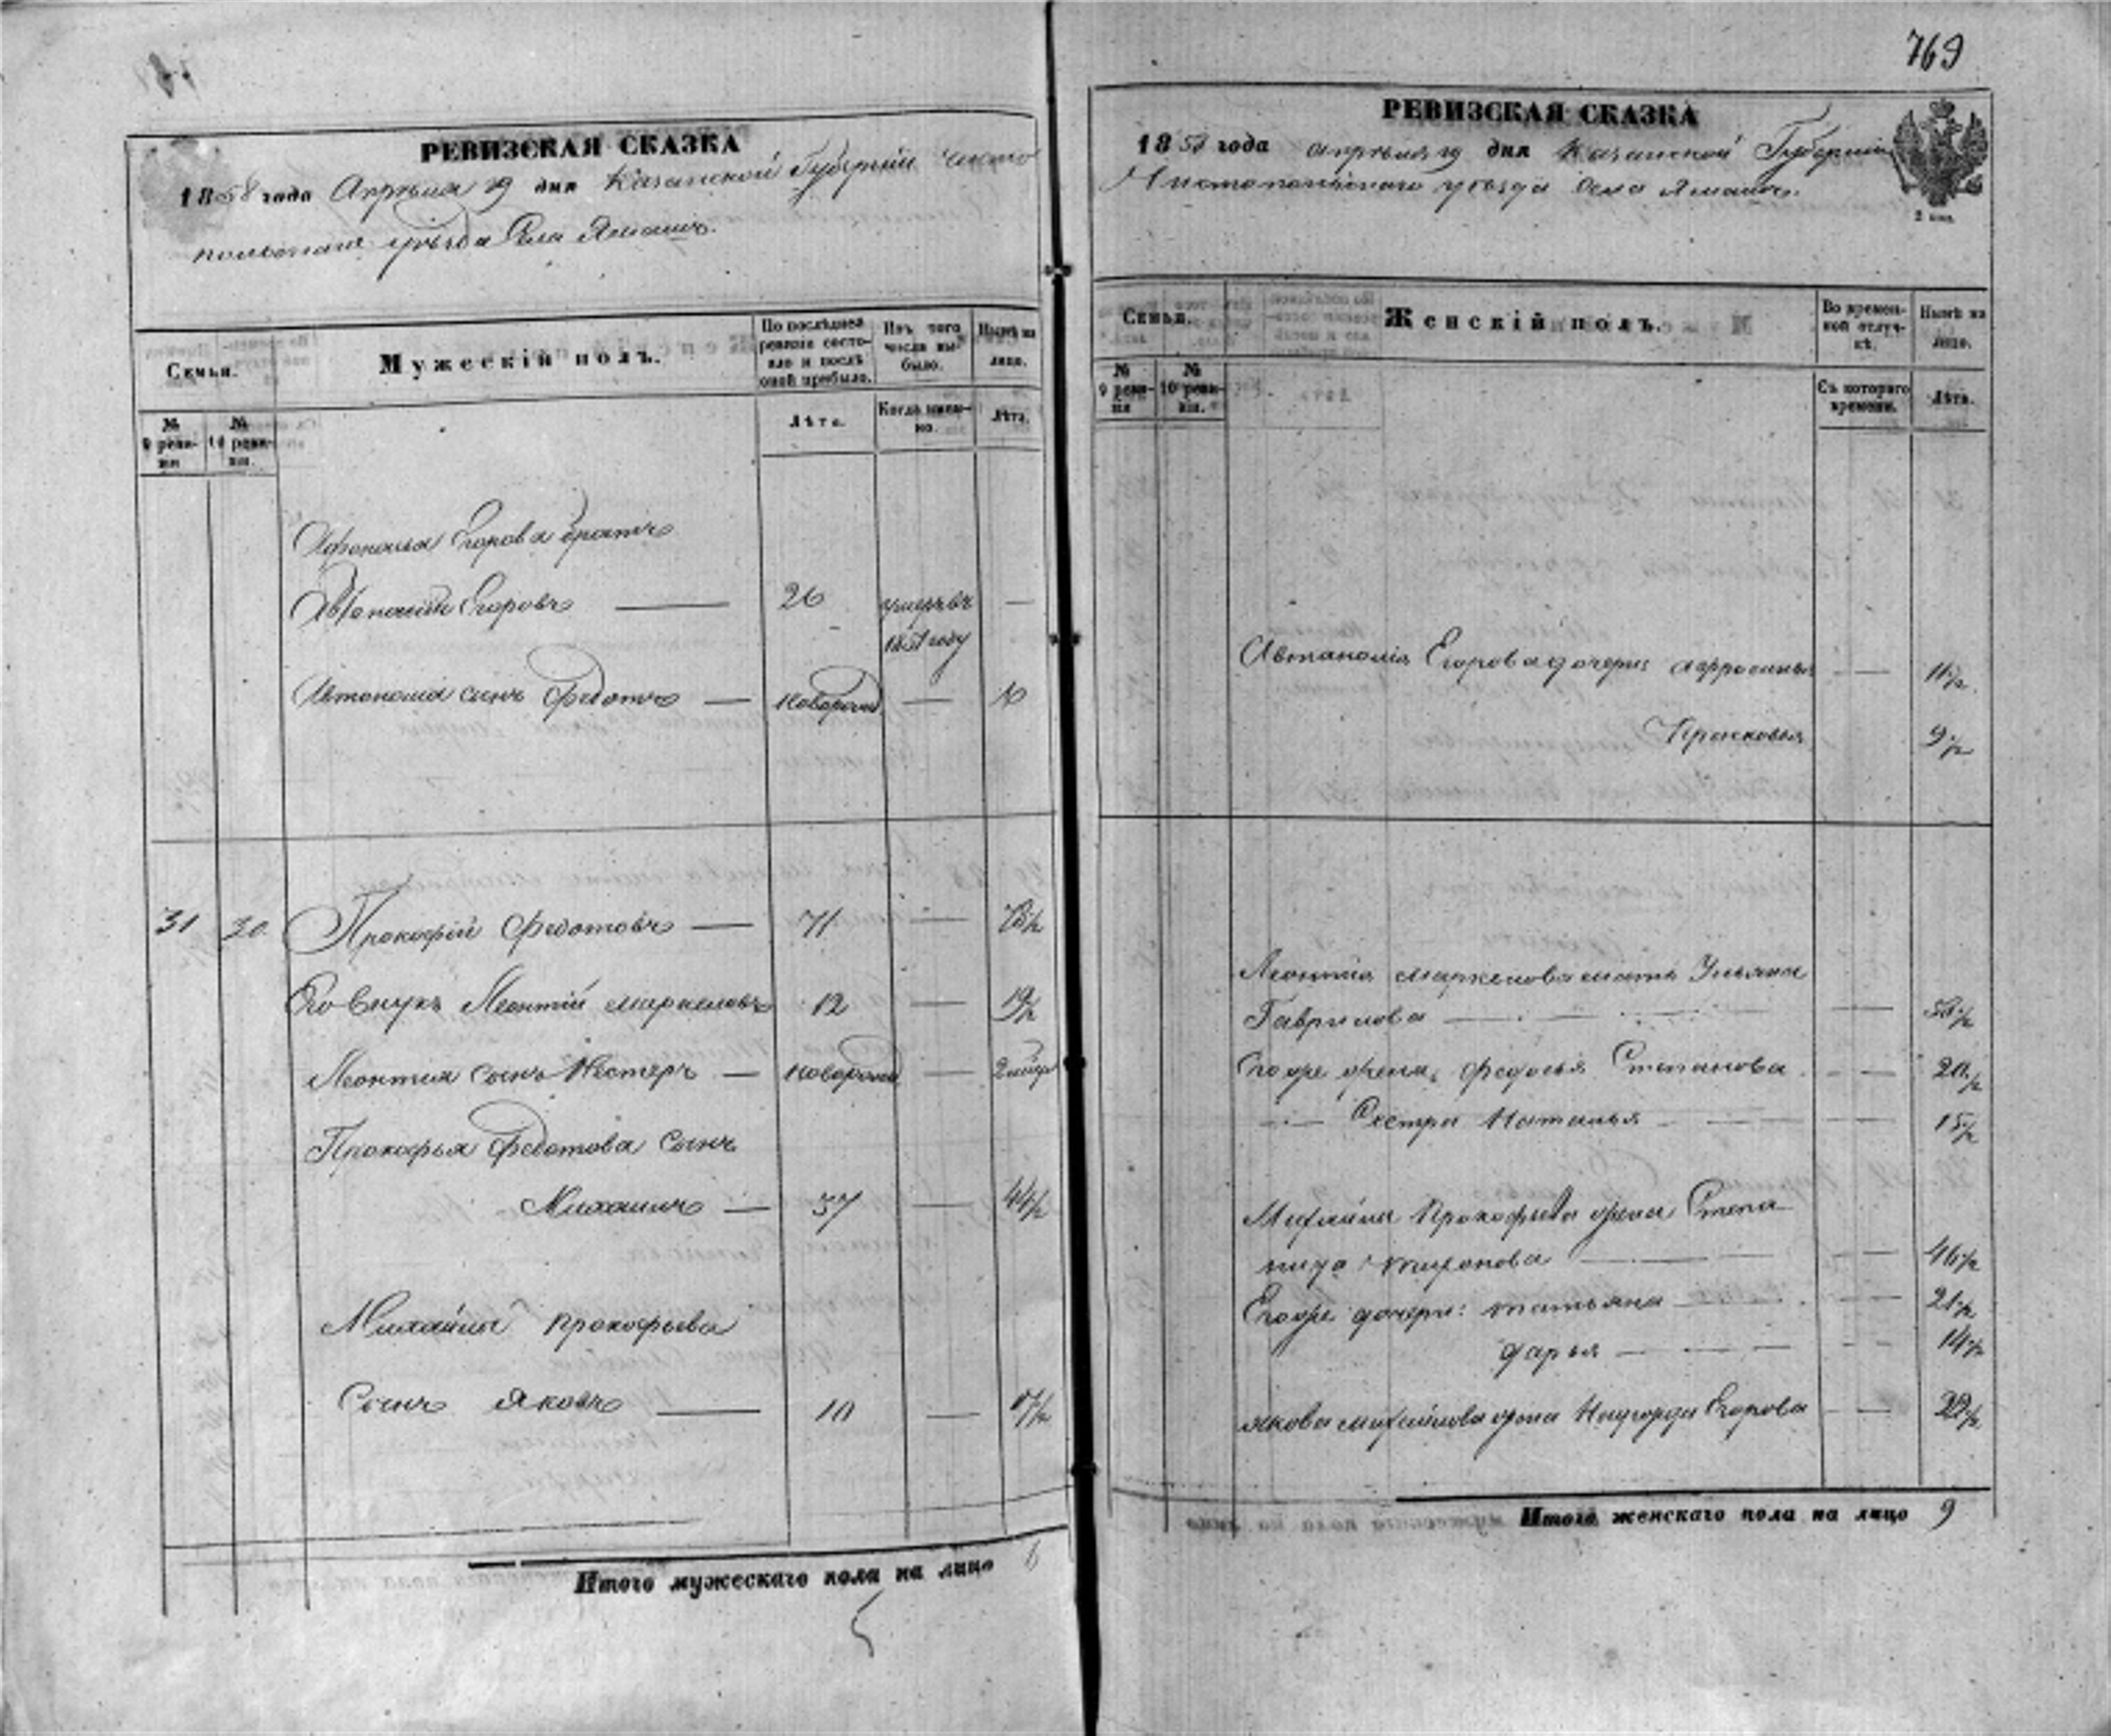 769
РЕВИЗСКАЯ СКАЗКА
1858 года Апреля 19 дня Казанской Губернии Чисто
польскаго уѣзда Села
Семьи.
Мужескій полъ.
По послѣдней ревизіи состояло и послѣ оной прибыло.
Изъ того числа выбыло.
Нынѣ на лицо.
№ 9 ревизіи
№ 10 ревизіи.
Лѣта.
Когда именно.
Лѣта.
Егорова братъ
Егоровъ — 26 умеръ въ —
1851 году
Автонома сынъ Федотъ — новорожд —
31 20 Прокофій Федотовъ — 71 —
Его внукъ Леонтій Маркеловъ 12 — 19½
Леонтия сынъ Нестеръ — новорожд —
Прокофья Федотова сынъ
Михаилъ — 37 — 44½
Михайлы Прокофьева
Сынъ Яковъ — 10 — 17½
Итого мужескаго пола на лицо 6
5
РЕВИЗСКАЯ СКАЗКА
1858 года апреля 19 дня Казанской Губернии
Чистопольскаго уѣзда Села
2 коп.
Семьи.
Женскій полъ.
Во временной отлучкѣ.
Нынѣ на лицо.
№ 9 ревизіи
№ 10 ревизіи.
Съ котораго времени.
Лѣта.
Егорова дочери: — 11½
Прасковья — 9½
Леонтия Маркелова мать Ульяна
Гаврилова —
Его же жена Федосья Степанова — 20½
— Сестра Наталья — 15½
Михайла Прокофьева жена Степа
нида — 46½
Его же дочери: татьяна — 21½
дарья — 14½
Якова Михайлова жена Егорова —
Итого женскаго пола на лицо 9